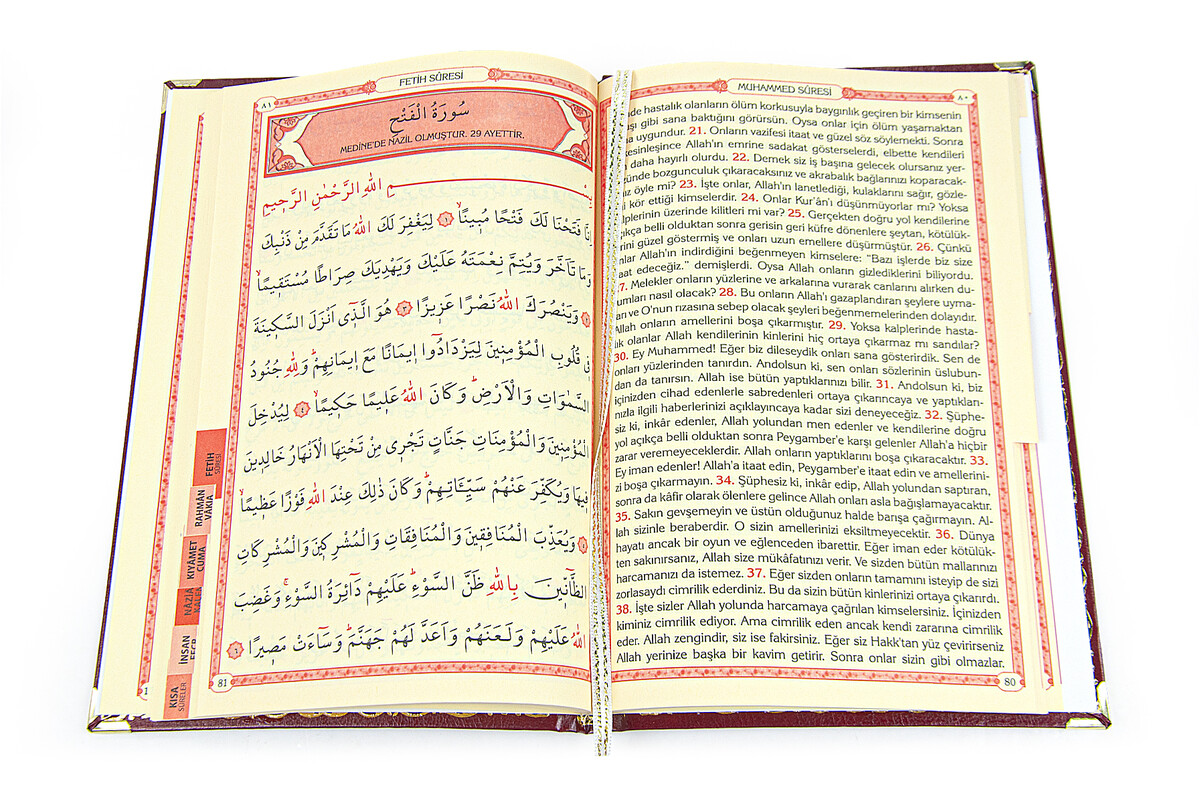 FETİH SÛRESİ
٨١
سُورَةُ الْفَتْحِ
MEDİNE'DE NAZİL OLMUŞTUR. 29 AYETTİR.
بِسْمِ اللهِ الرَّحْمٰنِ الرَّحِيمِ
اِنَّا فَتَحْنَا لَكَ فَتْحًا مُبِينًاۙ ﴿١﴾ لِيَغْفِرَ لَكَ اللهُ مَا تَقَدَّمَ مِنْ ذَنْبِكَ
وَمَا تَاَخَّرَ وَيُتِمَّ نِعْمَتَهُ عَلَيْكَ وَيَهْدِيَكَ صِرَاطًا مُسْتَقِيمًاۙ
﴿٢﴾ وَيَنْصُرَكَ اللهُ نَصْرًا عَزِيزًا ﴿٣﴾ هُوَ الَّذِي اَنْزَلَ السَّكِينَةَ
فِي قُلُوبِ الْمُؤْمِنِينَ لِيَزْدَادُٓوا اِيمَانًا مَعَ اِيمَانِهِمْۜ وَلِلهِ جُنُودُ
السَّمٰوَاتِ وَالْاَرْضِۜ وَكَانَ اللهُ عَلِيمًا حَكِيمًاۙ ﴿٤﴾ لِيُدْخِلَ
الْمُؤْمِنِينَ وَالْمُؤْمِنَاتِ جَنَّاتٍ تَجْرِي مِنْ تَحْتِهَا الْاَنْهَارُ خَالِدِينَ
فِيهَا وَيُكَفِّرَ عَنْهُمْ سَيِّـَٔاتِهِمْۜ وَكَانَ ذٰلِكَ عِنْدَ اللهِ فَوْزًا عَظِيمًاۙ
﴿٥﴾ وَيُعَذِّبَ الْمُنَافِقِينَ وَالْمُنَافِقَاتِ وَالْمُشْرِكِينَ وَالْمُشْرِكَاتِ
الظَّٓانِّينَ بِاللهِ ظَنَّ السَّوْءِۜ عَلَيْهِمْ دَٓائِرَةُ السَّوْءِۚ وَغَضِبَ
اللهُ عَلَيْهِمْ وَلَعَنَهُمْ وَاَعَدَّ لَهُمْ جَهَنَّمَۜ وَسَٓاءَتْ مَصِيرًا ﴿٦﴾
81
FETİH
SÛRESİ
RAHMÂN
VAKIA
KIYÂMET
CUMA
NAZİA
İNSAN
KISA
SÛRELER
1
MUHAMMED SÛRESİ
٨٠
de hastalık olanların ölüm korkusuyla baygınlık geçiren bir kimsenin
şı gibi sana baktığını görürsün. Oysa onlar için ölüm yaşamaktan
a uygundur. 21. Onların vazifesi itaat ve güzel söz söylemekti. Sonra
esinleşince Allah'ın emrine sadakat gösterselerdi, elbette kendileri
daha hayırlı olurdu. 22. Demek siz iş başına gelecek olursanız yer-
ünde bozgunculuk çıkaracaksınız ve akrabalık bağlarınızı koparacak-
ız öyle mi? 23. İşte onlar, Allah'ın lanetlediği, kulaklarını sağır, gözle-
i kör ettiği kimselerdir. 24. Onlar Kur'ân'ı düşünmüyorlar mı? Yoksa
alplerinin üzerinde kilitleri mi var? 25. Gerçekten doğru yol kendilerine
çıkça belli olduktan sonra gerisin geri küfre dönenlere şeytan, kötülük-
rini güzel göstermiş ve onları uzun emellere düşürmüştür. 26. Çünkü
nlar Allah'ın indirdiğini beğenmeyen kimselere: "Bazı işlerde biz size
aat edeceğiz." demişlerdi. Oysa Allah onların gizlediklerini biliyordu.
27. Melekler onların yüzlerine ve arkalarına vurarak canlarını alırken du-
umları nasıl olacak? 28. Bu onların Allah'ı gazaplandıran şeylere uyma-
arı ve O'nun rızasına sebep olacak şeyleri beğenmemelerinden dolayıdır.
Allah onların amellerini boşa çıkarmıştır. 29. Yoksa kalplerinde hasta-
lık olanlar Allah kendilerinin kinlerini hiç ortaya çıkarmaz mı sandılar?
30. Ey Muhammed! Eğer biz dileseydik onları sana gösterirdik. Sen de
onları yüzlerinden tanırdın. Andolsun ki, sen onları sözlerinin üslubun-
dan da tanırsın. Allah ise bütün yaptıklarınızı bilir. 31. Andolsun ki, biz
içinizden cihad edenlerle sabredenleri ortaya çıkarıncaya ve yaptıkları-
nızla ilgili haberlerinizi açıklayıncaya kadar sizi deneyeceğiz. 32. Şüphe-
siz ki, inkâr edenler, Allah yolundan men edenler ve kendilerine doğru
yol açıkça belli olduktan sonra Peygamber'e karşı gelenler Allah'a hiçbir
zarar veremeyeceklerdir. Allah onların yaptıklarını boşa çıkaracaktır. 33.
Ey iman edenler! Allah'a itaat edin, Peygamber'e itaat edin ve amellerini-
zi boşa çıkarmayın. 34. Şüphesiz ki, inkâr edip, Allah yolundan saptıran,
sonra da kâfir olarak ölenlere gelince Allah onları asla bağışlamayacaktır.
35. Sakın gevşemeyin ve üstün olduğunuz halde barışa çağırmayın. Al-
lah sizinle beraberdir. O sizin amellerinizi eksiltmeyecektir. 36. Dünya
hayatı ancak bir oyun ve eğlenceden ibarettir. Eğer iman eder kötülük-
ten sakınırsanız, Allah size mükâfatınızı verir. Ve sizden bütün mallarınızı
harcamanızı da istemez. 37. Eğer sizden onların tamamını isteyip de sizi
zorlasaydı cimrilik ederdiniz. Bu da sizin bütün kinlerinizi ortaya çıkarırdı.
38. İşte sizler Allah yolunda harcamaya çağrılan kimselersiniz. İçinizden
kiminiz cimrilik ediyor. Ama cimrilik eden ancak kendi zararına cimrilik
eder. Allah zengindir, siz ise fakirsiniz. Eğer siz Hakk'tan yüz çevirirseniz
Allah yerinize başka bir kavim getirir. Sonra onlar sizin gibi olmazlar.
80